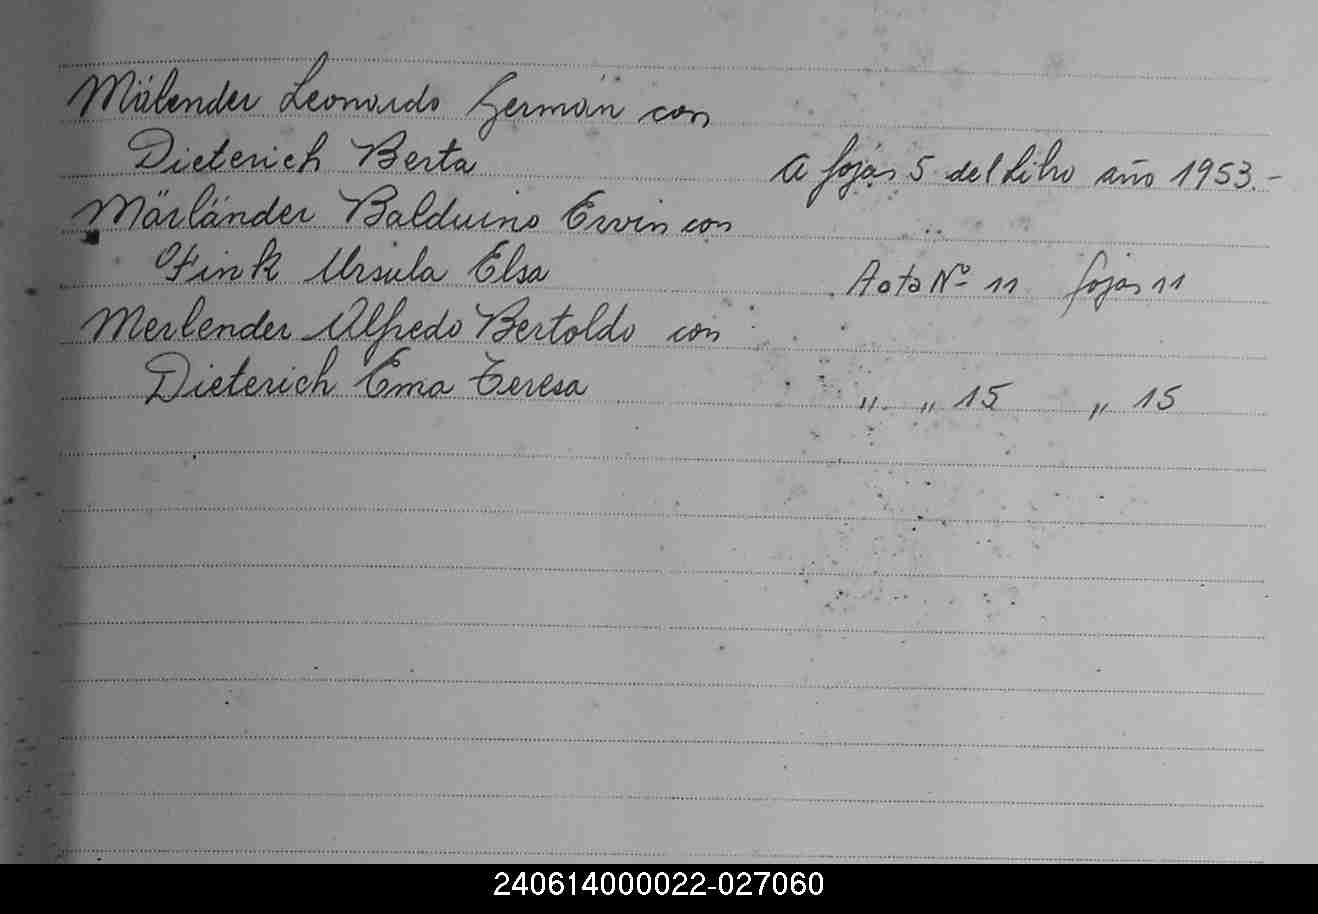 Mälender Leonardo Germán con
Dieterich Berta a fojas 5 del Libro año 1953.-
Märländer Balduino Ervin con
Fink Ursula Elsa Acta Nº 11 fojas 11
Merlender Alfredo Bertoldo con
Dieterich Ema Teresa " " 15 " 15
240614000022-027060